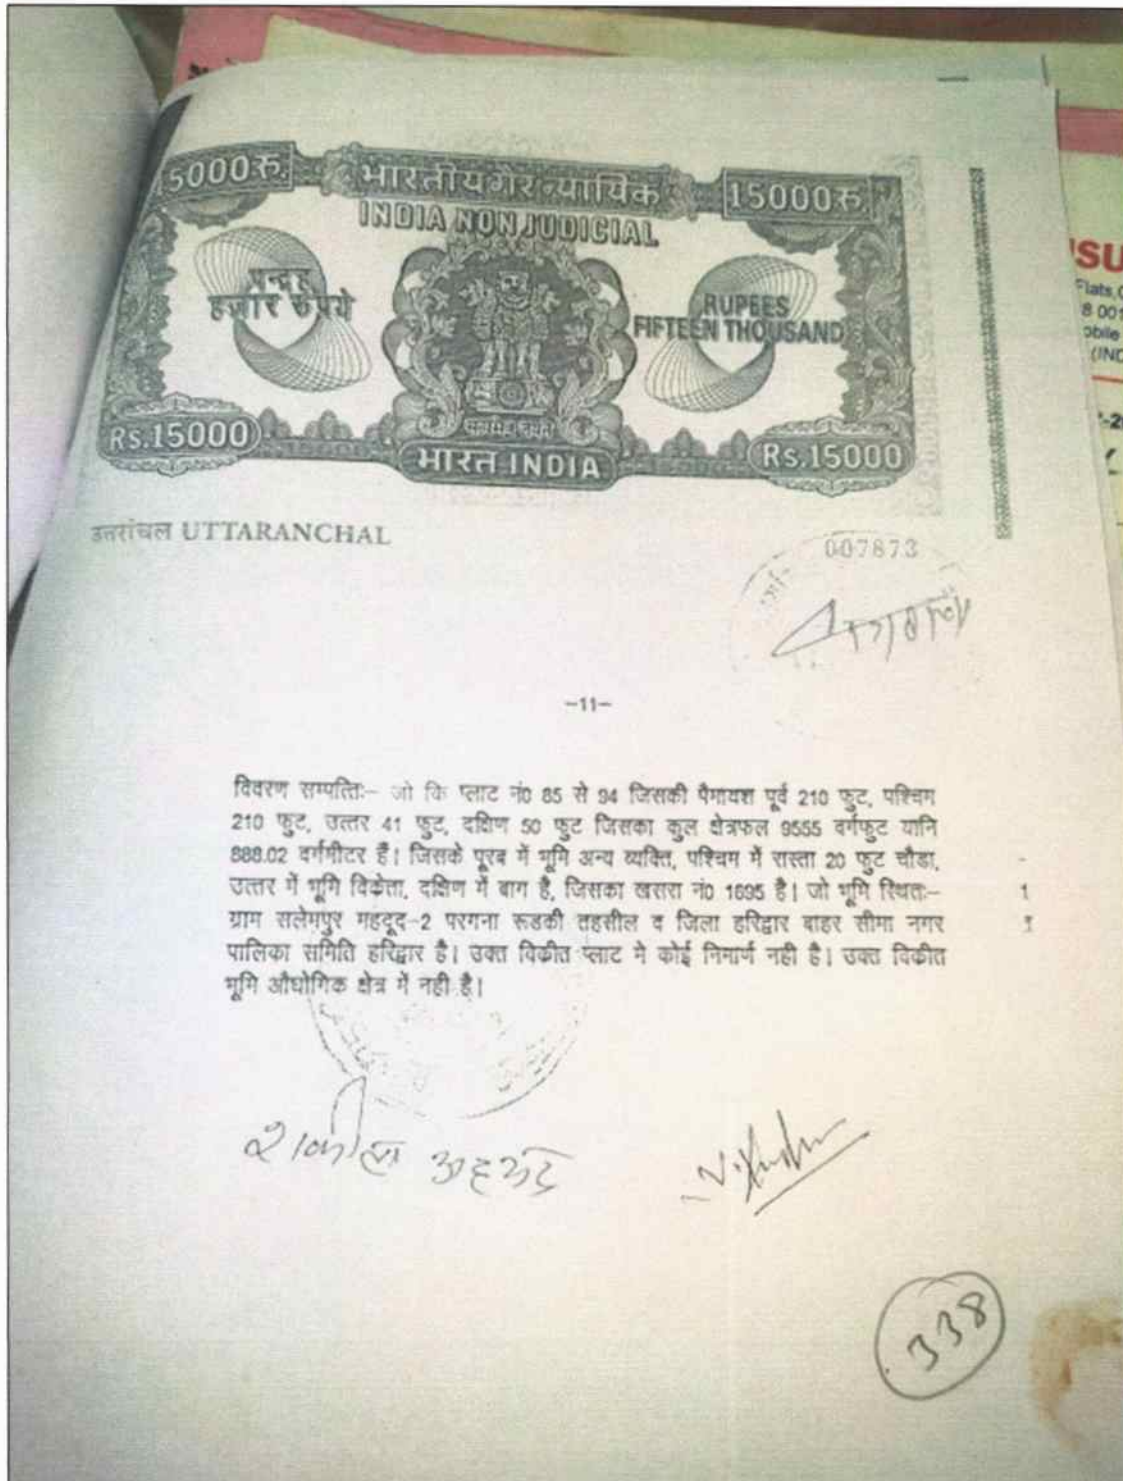 5000रु. भारतीय गैर न्यायिक 15000रु.
INDIA NON JUDICIAL
पन्द्रह
हजार रुपये
RUPEES
FIFTEEN THOUSAND
Rs.15000
सत्यमेव जयते
भारत INDIA
Rs.15000
उत्तरांचल UTTARANCHAL
007873
-11-
विवरण सम्पत्तिः- जो कि प्लाट नं0 85 से 94 जिसकी पैमायश पूर्व 210 फुट, पश्चिम
210 फुट, उत्तर 41 फुट, दक्षिण 50 फुट जिसका कुल क्षेत्रफल 9555 वर्गफुट यानि
888.02 वर्गमीटर है। जिसके पूरब में भूमि अन्य व्यक्ति, पश्चिम में रास्ता 20 फुट चौडा,
उत्तर में भूमि विकेता, दक्षिण में बाग है, जिसका खसरा नं0 1695 है। जो भूमि स्थितः-
ग्राम सलेमपुर महदूद-2 परगना रूडकी तहसील व जिला हरिद्वार बाहर सीमा नगर
पालिका समिति हरिद्वार है। उक्त विकीत प्लाट मे कोई निमार्ण नही है। उक्त विकीत
भूमि औघोगिक क्षेत्र में नही है।
शकील अहमद
338
SU
Flats,
8 001
obile
(IND